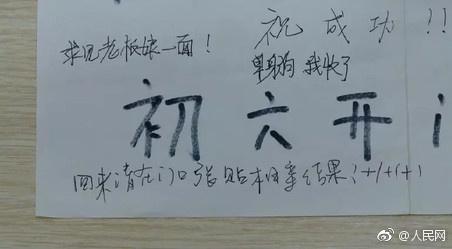 祝成功!!
求见老板娘一面!
单身狗 我收了
初六开
回来请在门口张贴相亲结果!+1+1+1
@人民网